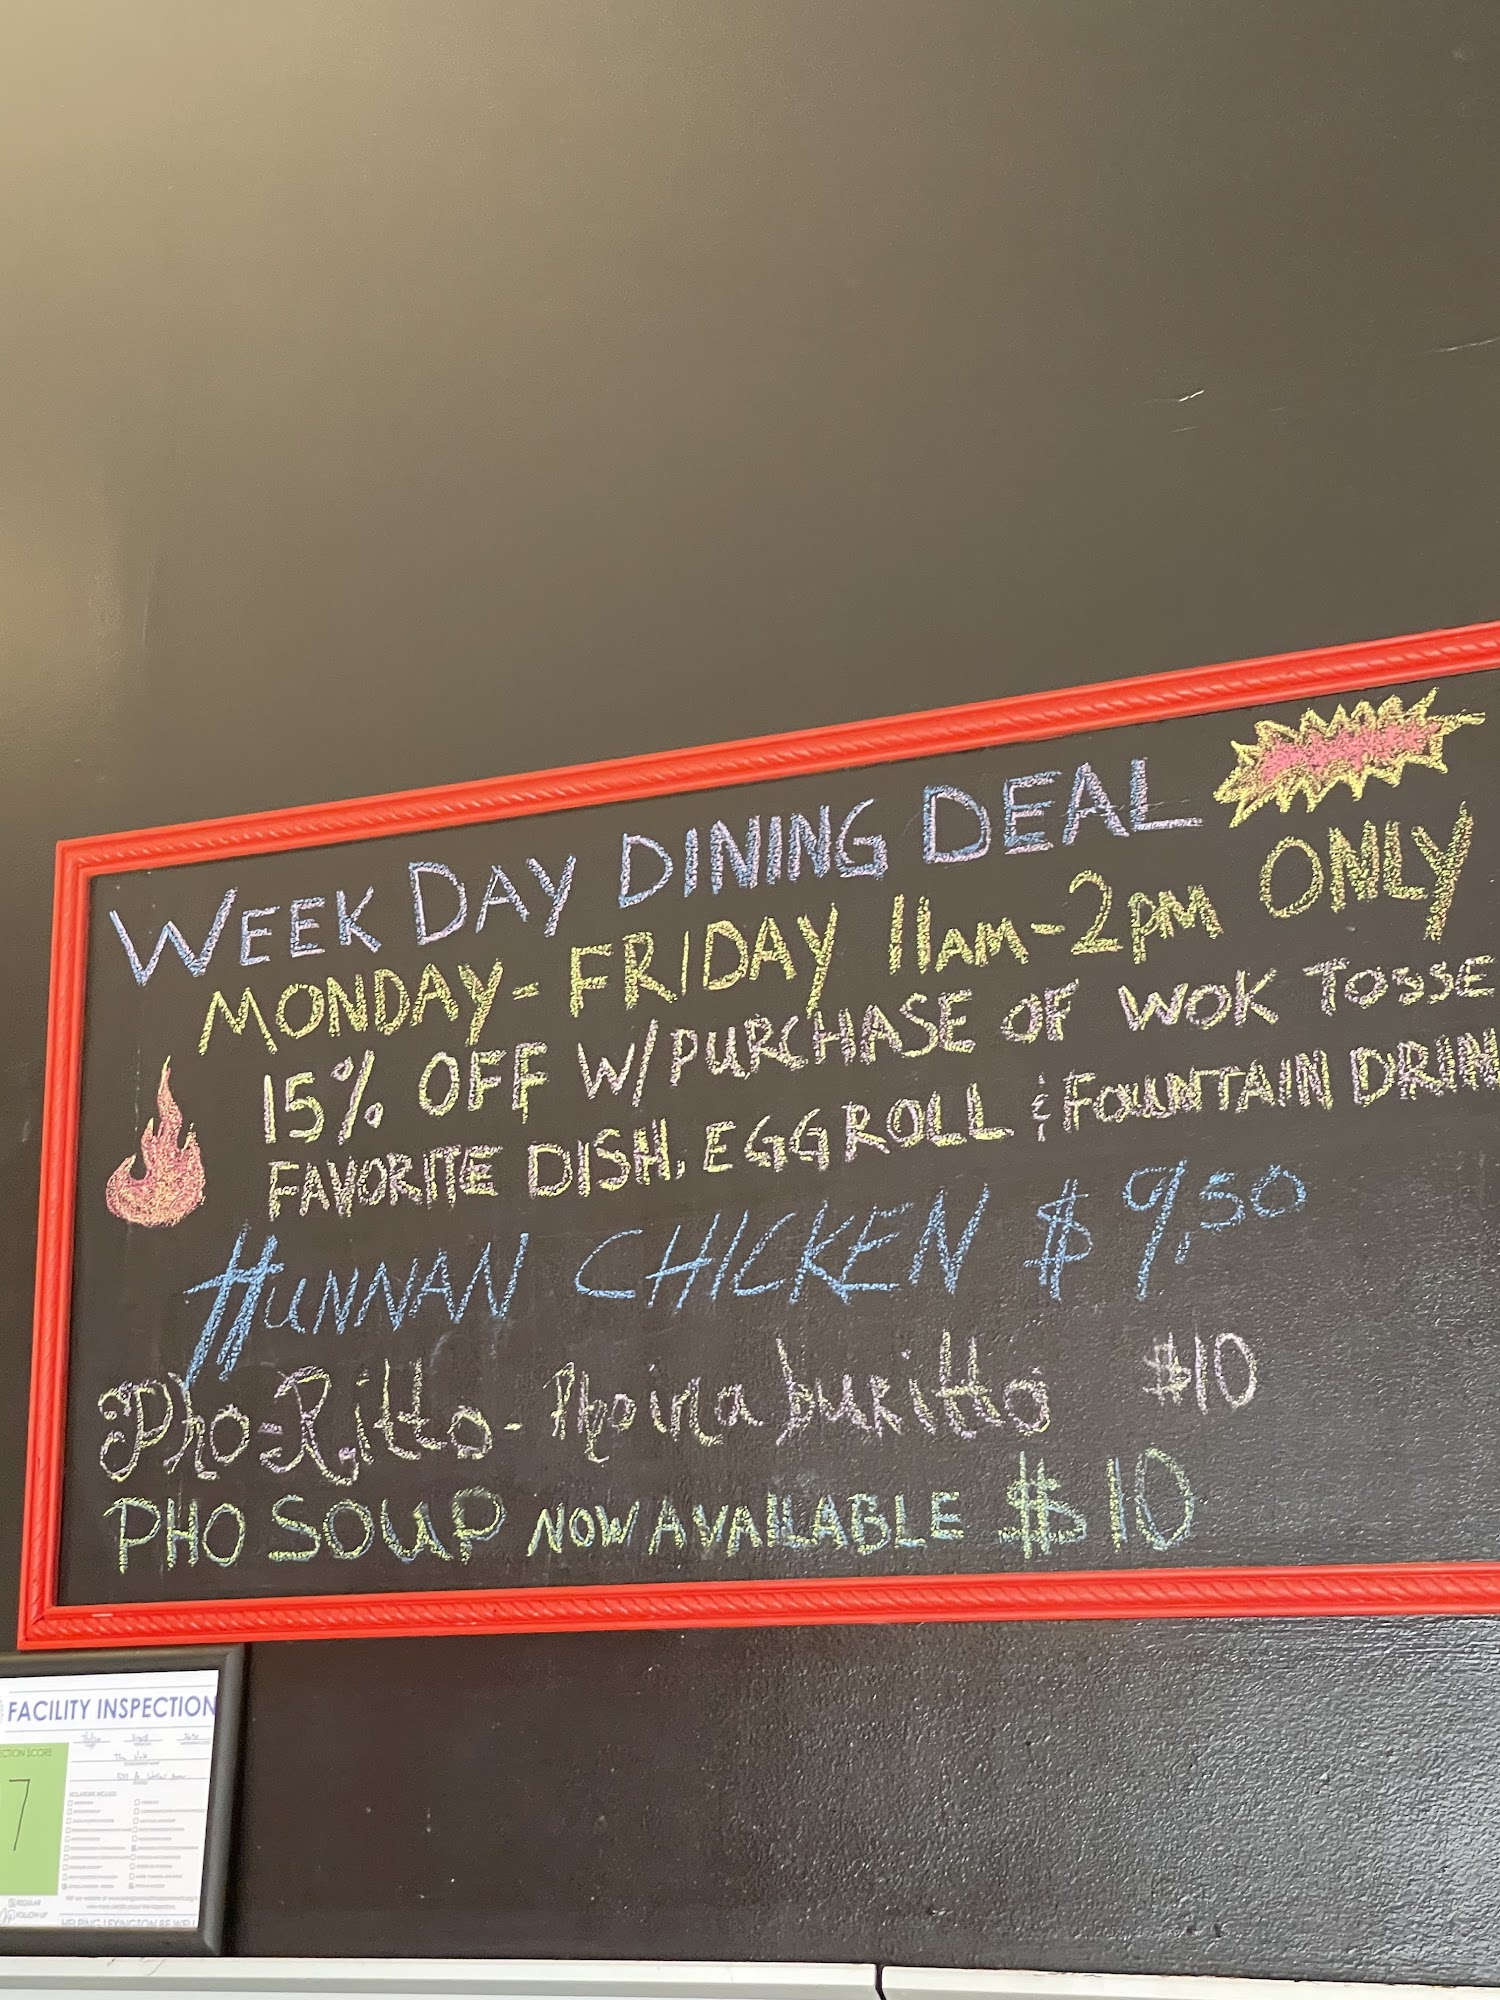 WEEK DAY DINING DEAL
MONDAY-FRIDAY 11AM-2PM ONLY
15% OFF W/PURCHASE OF WOK TOSSE
FAVORITE DISH, EGGROLL & FOUNTAIN DRIN
HUNNAN CHICKEN $9.50
Pho-Ritto- Phoina buritto $10
PHO SOUP NOW AVAILABLE $10
FACILITY INSPECTION
CTION SCORE
7
The Wok
VIOLATIONS INCLUDE:
REGULAR
FOLLOW-UP
HELPING LEXINGTON BE WELL